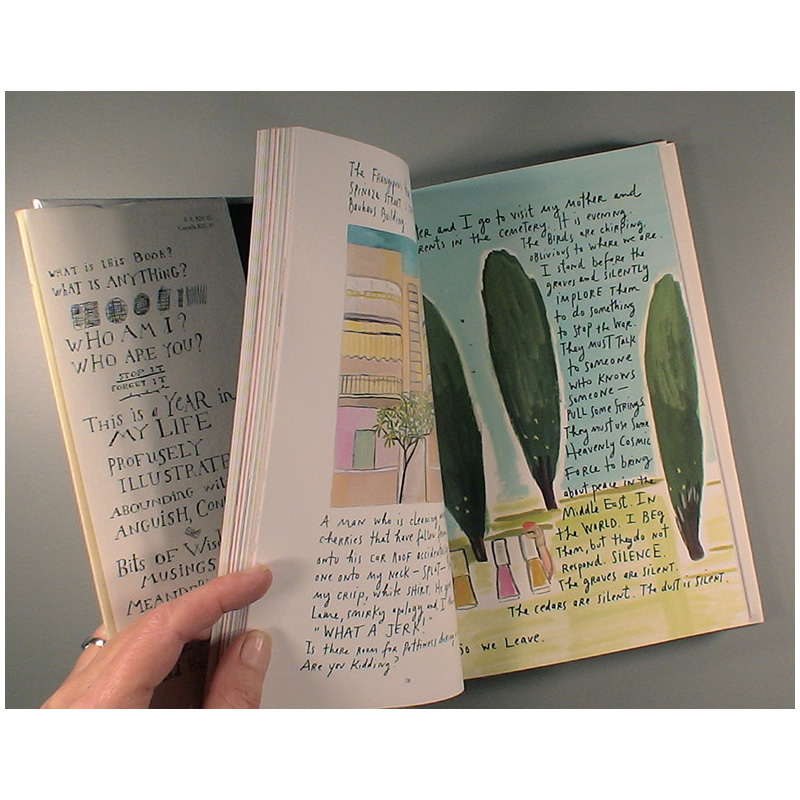 WHAT IS THIS BOOK?
WHAT IS ANYTHING?
WHO AM I?
WHO ARE YOU?
STOP IT
FORGET IT
THIS IS A YEAR in
MY LIFE
PROFUSELY
ILLUSTRATE
ABOUNDING wit
ANGUISH, CON
BITS OF WIS
MUSINGS
MEANDE
The
SPINOZA STREET
Bauhaus Building
A MAN who is cleaning
cherries that have fallen
onto his CAR ROOF accidenta
one onto my Neck — SPLAT —
my CRISP, WHITE SHIRT. He
Lame, smirky apology and I
"WHAT A JERK."
Is there room for Pettiness
Are you kidding?
ter and I go to visit my MOTHER and
rents in the cemetery. It is evening.
The BIRDS are chirping,
oblivious to where we are.
I stand before the
graves and SILENTLY
IMPLORE Them
to do something
to STOP the WAR.
They MUST TALK
to someone
who KNOWS
someone —
PULL some STRINGS.
They must use some
Heavenly Cosmic
Force to bring
about peace in the
Middle East. IN
the WORLD. I BEG
Them, but they do not
Respond. SILENCE.
The graves are silent.
The cedars are silent. The dust is silent.
So we Leave.